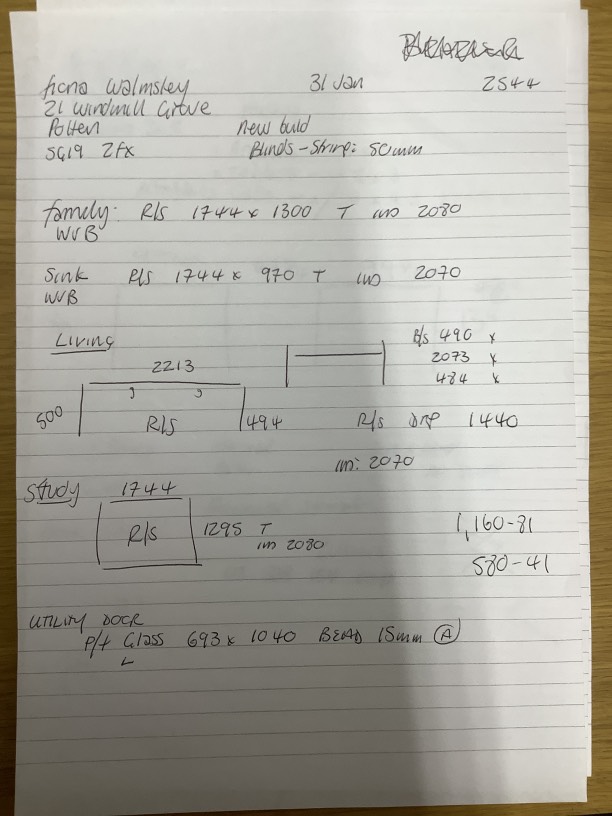 Fiona Walmsley 31 Jan 2544
21 Windmill Grove
Potton New build
SG19 2FX Blinds - String: 50mm
family: R/S 1744 x 1300 T 2080
WVB
Sink R/S 1744 x 970 T 2070
WVB
Living R/S 490 x
2213 2073 x
484 x
500 R/S 494 R/S DRP 1440
2070
Study 1744
R/S 1295 T
2080 1,160-81
580-41
UTILITY DOOR
P/F Glass 693 x 1040 BEAD 15mm A
L